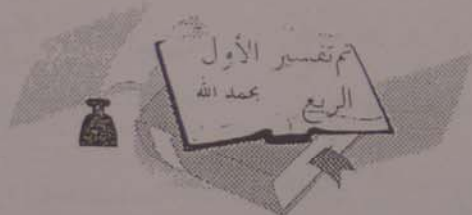 تم تفسير الأول
الربع بحمد الله